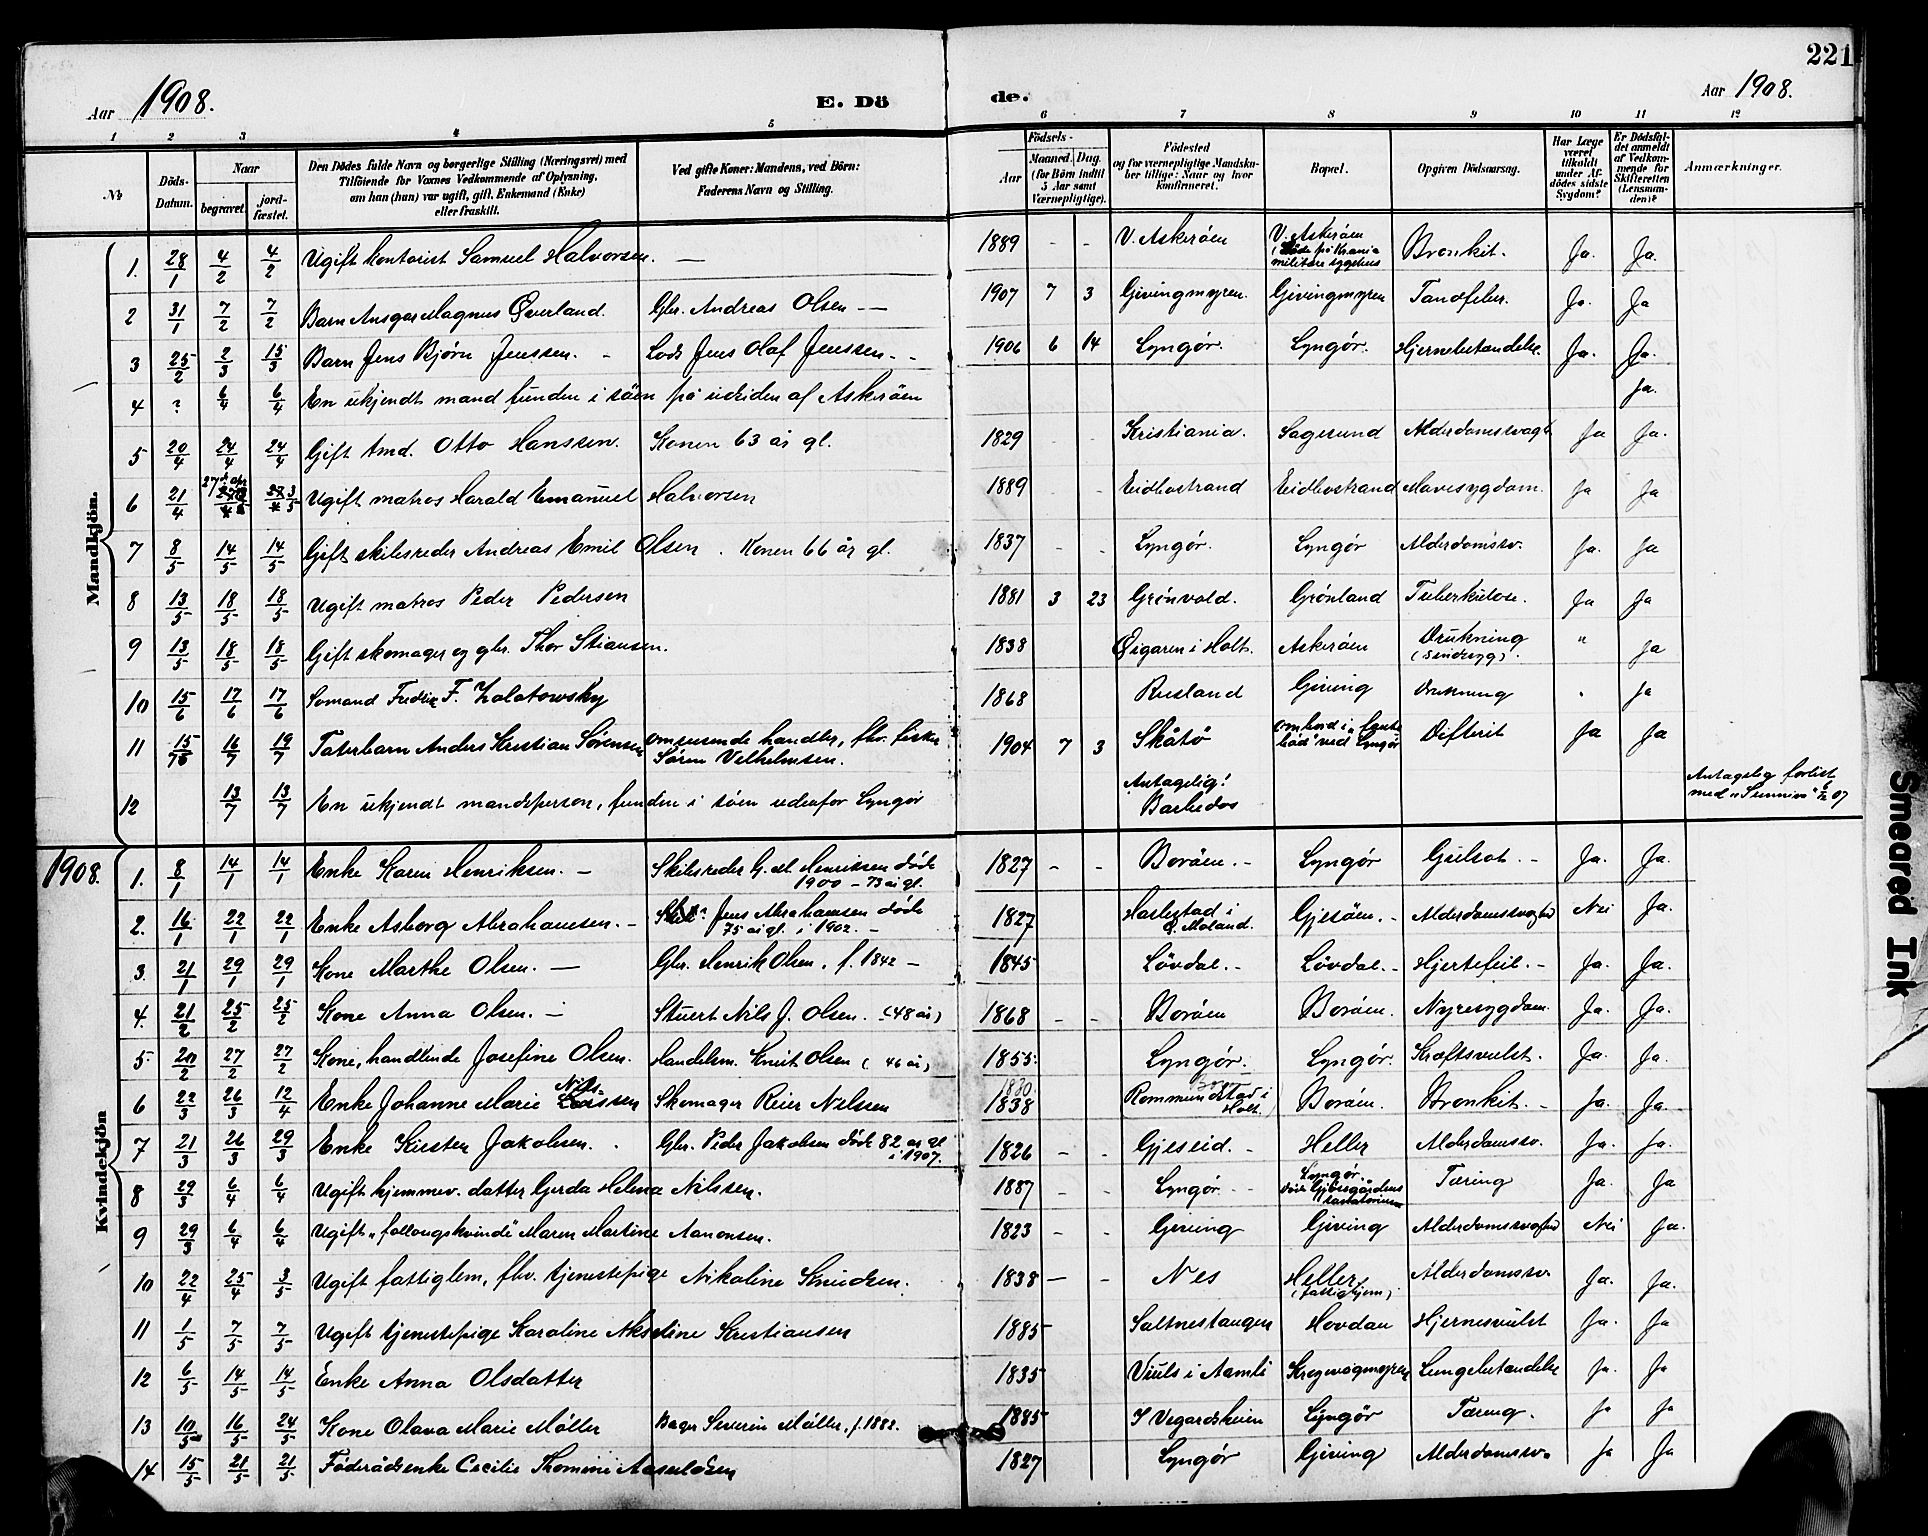 221
Aar 1908.
E. Dö
de.
Aar 1908.
1 2 3 4 5 6 7 8 9 10 11 12
No.
Döds-Datum.
Naar
begravet.
jord-fæstet.
Den Dödes fulde Navn og borgerlige Stilling (Næringsvei) med
Tilföiende for Voxnes Vedkommende af Oplysning,
om han (hun) var ugift, gift, Enkemand (Enke)
eller fraskilt.
Ved gifte Koner: Mandens, ved Börn:
Faderens Navn og Stilling.
Födsels-
Aar
Maaned. Dag.
(for Börn indtil
5 Aar samt
Værnepligtige).
Födested
og for værnepligtige Mandska-
ber tillige: Naar og hvor
konfirmeret.
Bopæl.
Opgiven Dödsaarsag.
Har Læge
været
tilkaldt
under Af-
dödes sidste
Sygdom?
Er Dödsfal-
det anmeldt
af Vedkom-
mende for
Skifteretten
(Lensman-
den)?
Anmærkninger.
Mandkjön.
1. 28/1 4/2 4/2 Ugift kontorist Samuel Halvorsen. — 1889 - - V. Askeröen V. Askeröen (Döde på Krania militære sygehus Bronkit. Ja. Ja.
2 31/1 7/2 7/2 Barn Ansgar Magnus Øverland. Gbr. Andreas Olsen — 1907 7 3 Givingmyren. Givingmyren Tandfeber. Ja. Ja
3 25/2 2/3 15/3 Barn Jens Bjørn Jenssen. - Lods Jens Olaf Jenssen. - 1906 6 14 Lyngør. Lyngør. Hjernebetændelse Ja. Ja.
4 ? 6/4 6/4 En ukjendt mand funden i söen på udsiden af Askeröen Ja.
5 20/4 24/4 24/4 Gift tmd. Otto Hanssen. Konen 63 år gl. 1829 - - Kristiania. Sagesund Alderdomssvagh. Ja Ja.
6 21/4 27de apr 3/5 Ugift matros Harald Emanuel Halvorsen 1889 - - Eidbostrand Eidbostrand Mavesygdom. Ja Ja
7 8/5 14/5 14/5 Gift skibsreder Andreas Emil Olsen. Konen 66 år gl. 1837 - - Lyngør. Lyngør Alderdomssv. Ja. Ja
8 13/5 18/5 18/5 Ugift matros Peder Pedersen 1881 3 23 Grönvold. Grönland Tuberkulose. Ja Ja
9 13/5 18/5 18/5 Gift skomager og gbr. Thor Stiansen. 1838 Øigaren i Holt. Askeröen Drukning (sindssyg). " Ja
10 15/6 17/6 17/6 Sømand F. Zolatowsky 1868 Rusland Giving Drukning " Ja
11 15/7 16/7 19/7 Taterbarn Anders Kristian Sørensen omreisende handler, fhv. fisker Sören Vilhelmsen. 1904 7 3 Skåtö ombord i båd ved Lyngør Difterit Ja Ja
12 13/7 13/7 En ukjendt mandsperson, funden i söen udenfor Lyngør Antagelig! Barbedos Antagelig forlist med "Sunniva" 07
1908.
Kvindekjön
1. 8/1 14/1 14/1 Enke Karen Henriksen. — Skibsreder G. M. Henriksen døde 1900 - 73 år gl. 1827 - - Boröen. - Lyngør Gulsot. - Ja. Ja.
2. 16/1 22/1 22/1 Enke Asborg Abrahamsen. - Jens Abrahamsen døde 75 år gl. i 1902. - 1827 Harlestad i Ø. Moland. Gjesöen. - Alderdomssvaghed Nei Ja.
3. 21/1 29/1 29/1 Kone Marthe Olsen. — Gbr. Henrik Olsen, f. 1842 - 1845 Lövdal. - Lövdal. - Hjertefeil. - Ja. Ja.
4. 21/2 25/2 25/2 Kone Anna Olsen. — Stuert Nils J. Olsen. (48 år) 1868 - - Boröen Boröen. Nyresygdom. Ja. Ja.
5 20/2 27/2 27/2 Kone, handlende Josefine Olsen. Handelsm. Knut Olsen (46 år) 1855. Lyngør. Lyngør. Kræftsvulst. Ja. Ja.
6 22/3 26/3 12/4 Enke Johanne Marie Nilssen Skomager Reier Nilssen 1830 1838 Rommundstad i Holt. Boröen. Bronkit. - Ja. Ja.
7 21/3 26/3 29/3 Enke Kirsten Jakobsen. - Gbr. Peder Jakobsen døde 82 år gl i 1907. 1826 - - Gjeseid. - Heller Alderdomssv. Ja. Ja.
8 29/3 6/4 6/4 Ugift hjemmev. datter Gerda Helena Nilssen. 1887 - - Lyngør. - Lyngør. Tæring Ja. Ja
9 29/3 6/4 6/4 Ugift "follougskvinde" Maren Martine Aanonsen. 1823 - - Giving Giving Alderdomssvaghed Nei Ja.
10 22/4 25/4 3/5 Ugift fattiglem, fhv. tjenestepige Nikoline Knudsen. 1838 — - Nes Heller (fattighjem) Alderdomssv. Ja. Ja.
11 1/5 7/5 7/5 Ugift tjenestepige Karoline Akseline Kristiansen 1885 Saltnestangen Hovdan Hjernesvulst Ja. Ja
12 6/5 14/5 14/5 Enke Anna Olsdatter 1835 i Aamli Lungebetændelse Ja. Ja
13 10/5 16/5 24/5 Kone Olava Marie Möller Bager Severin Möller, f. 1882. 1885 Vegardsheien Lyngör Tæring. Ja Ja
14 15/5 21/5 21/5 Föderådsenke Cecilie Thomine 1827 Lyngør Giving Alderdomssv. Ja Ja
Smeared Ink